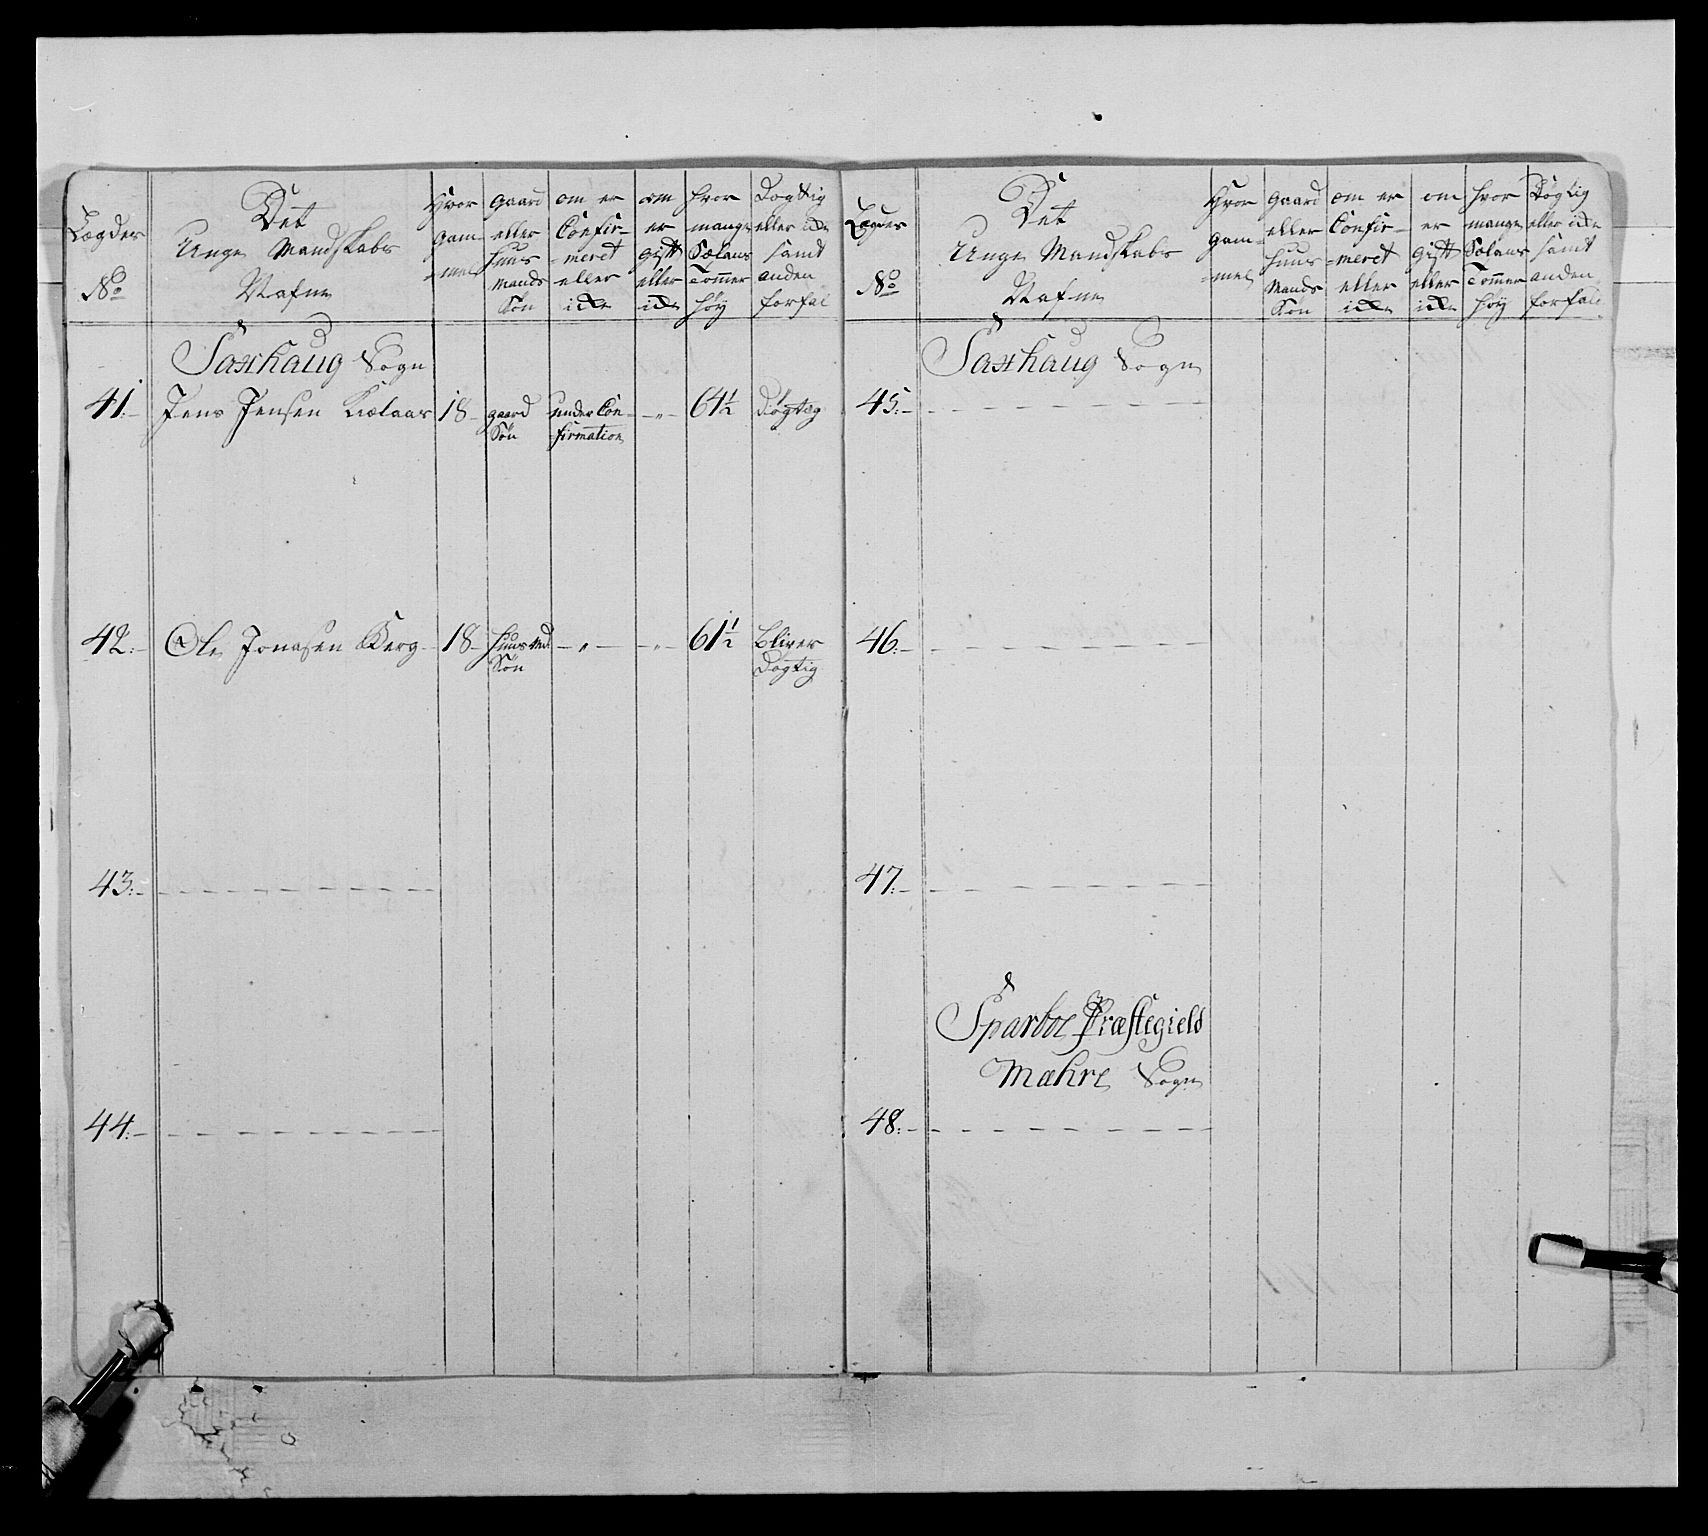 Lægder
No
Det
Unge Mandskabs
Nafne
Hvor
gam-
-mel
gaard
eller
Huus
mands
Søn
om er
Confir-
-meret
eller
icke
om
er
gift
eller
icke
hvor
mange
Sælans
Tommer
høy
Dogtig
eller icke
samt
anden
forfal
Saxhaug Sogn
41.- Jens Jensen Kiælaas 18- gaard under Con- -"- 64½ Døgtig
Søn -firmation
42.- Ole Jonasen Berg- 18- Huusmd -"- -"- 61½ bliver
Søn Døgtig
43.-
44.-
Lægder
No
Det
Unge Mandskabs
Nafne
Hvor
gam-
-mel
gaard
eller
huus
Mands
Søn
om er
Confir-
-meret
eller
icke
om
er
gift
eller
icke
hvor
mange
Sælans
Tommer
høy
Døgtig
eller icke
samt
anden
forfald
Saxhaug Sogn
45.-
46.-
47.-
Sparboe Præstegield
Mæhre Sogn
48.-